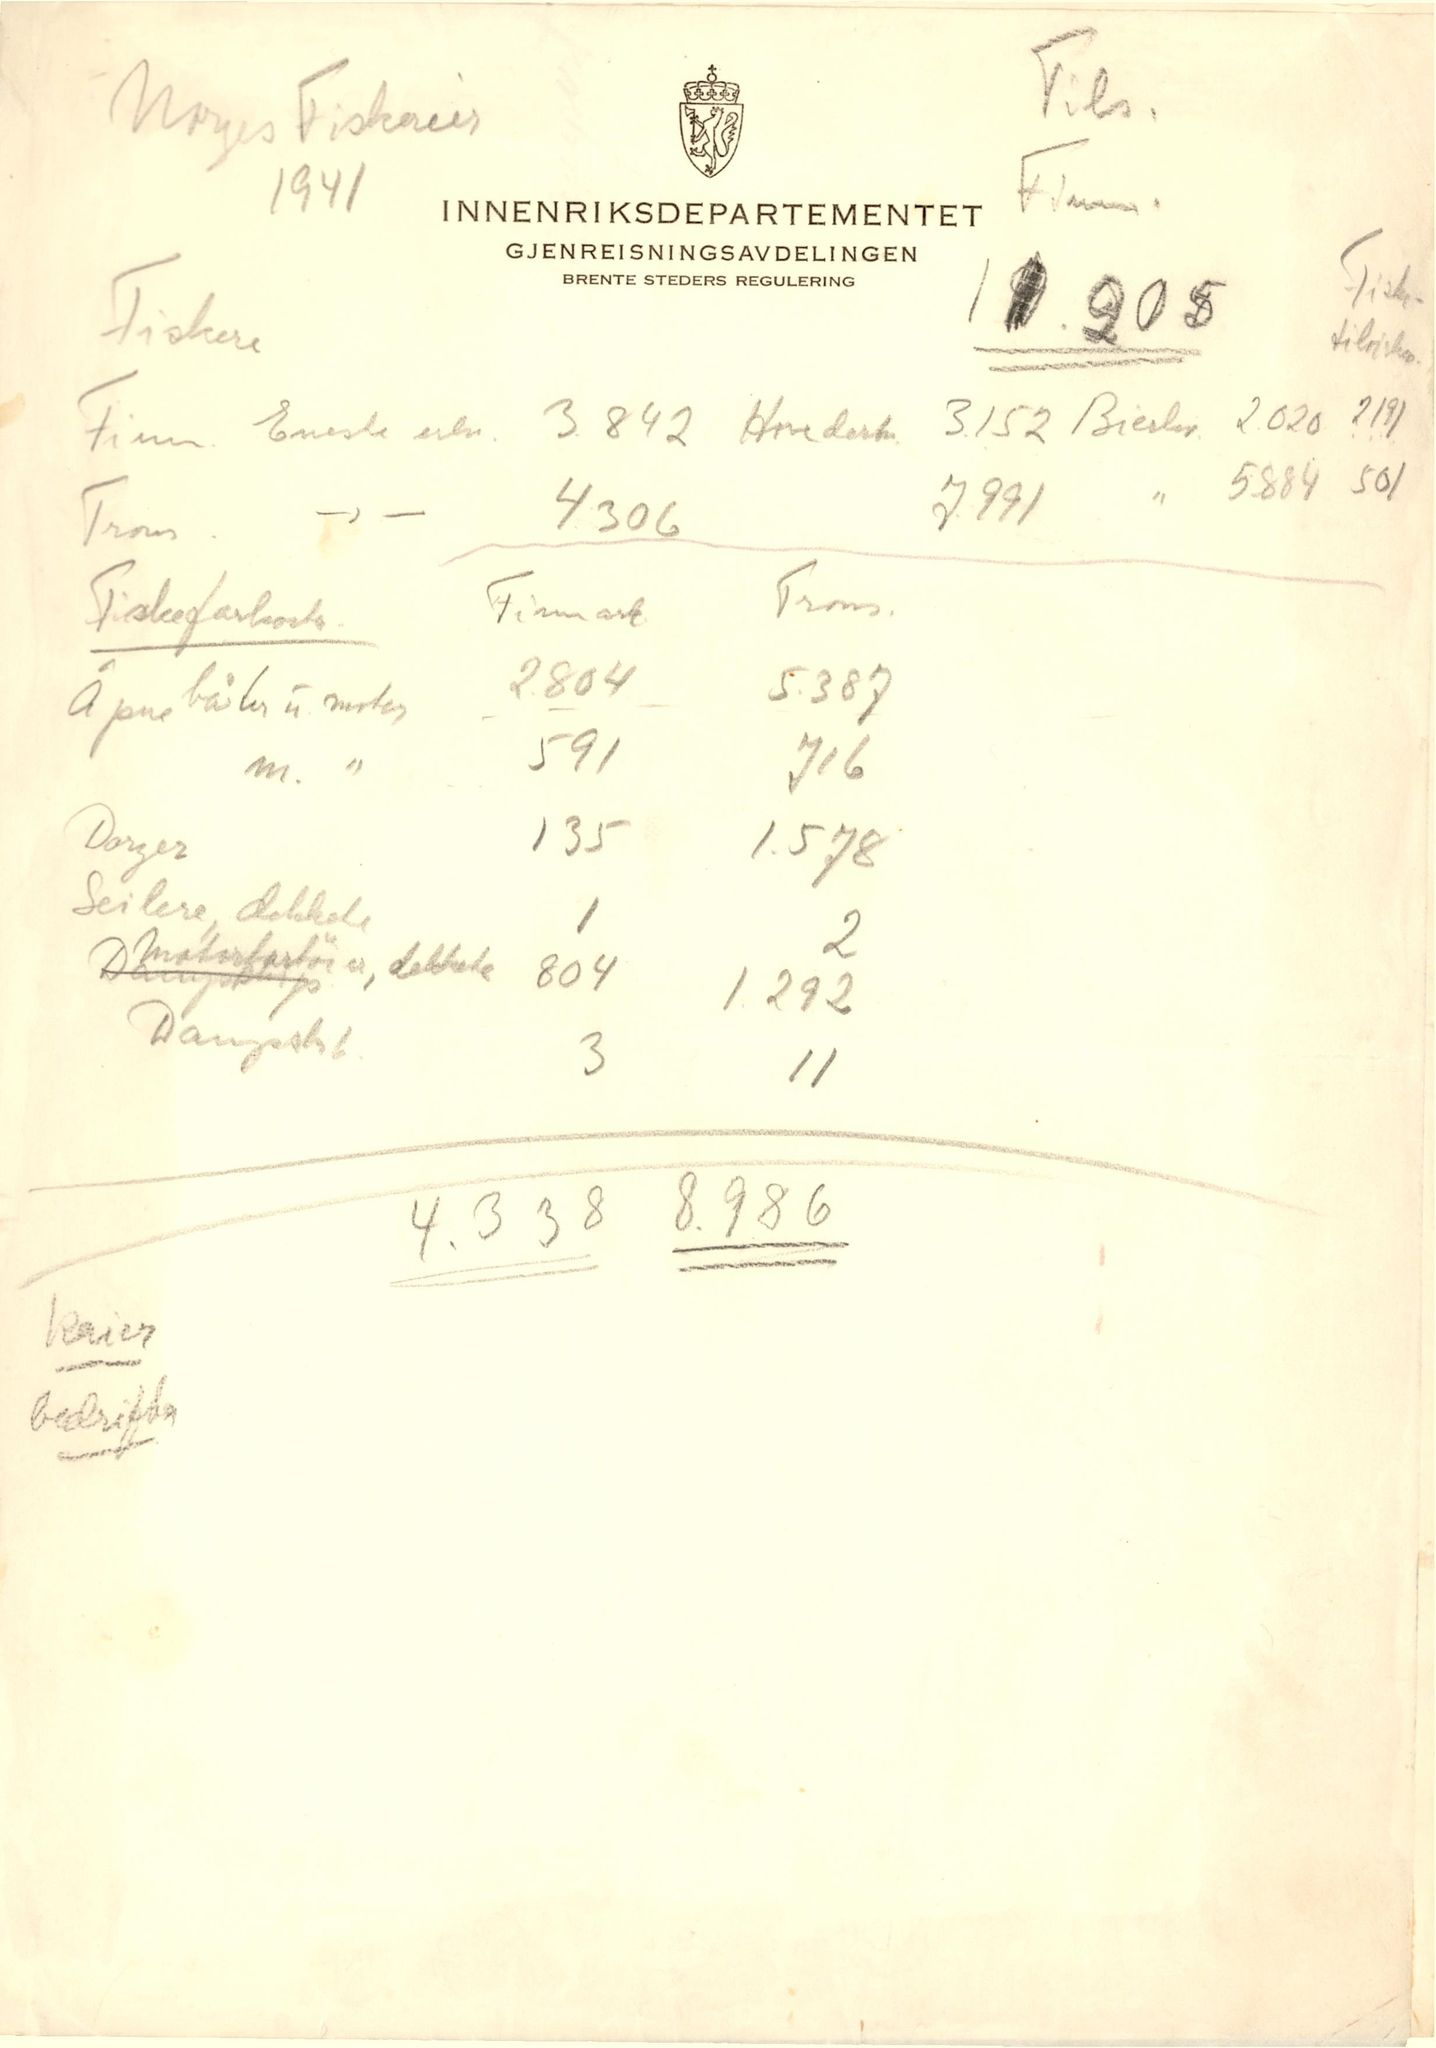 Norges Fiskerier
1941
Tils.
Finn.
INNENRIKSDEPARTEMENTET
GJENREISNINGSAVDELINGEN
BRENTE STEDERS REGULERING
11.205
Fiske-
tilvirkn.
Fiskere
Finn. Eneste erv. 3.842 Hovederv. 3.152 Bierv. 2.020 2191
Troms. —„— 4.306 7.991 " 5.884 501
Fiskefarkoster Finnmark Troms.
Åpne båter u. motor 2.804 5.387
m. " 591 716
Doryer 135 1.578
Seilere, dekkete 1 2
Motorfartöier, dekkete 804 1.292
Dampsk. 3 11
4.338 8.986
Kaier
bedrifter